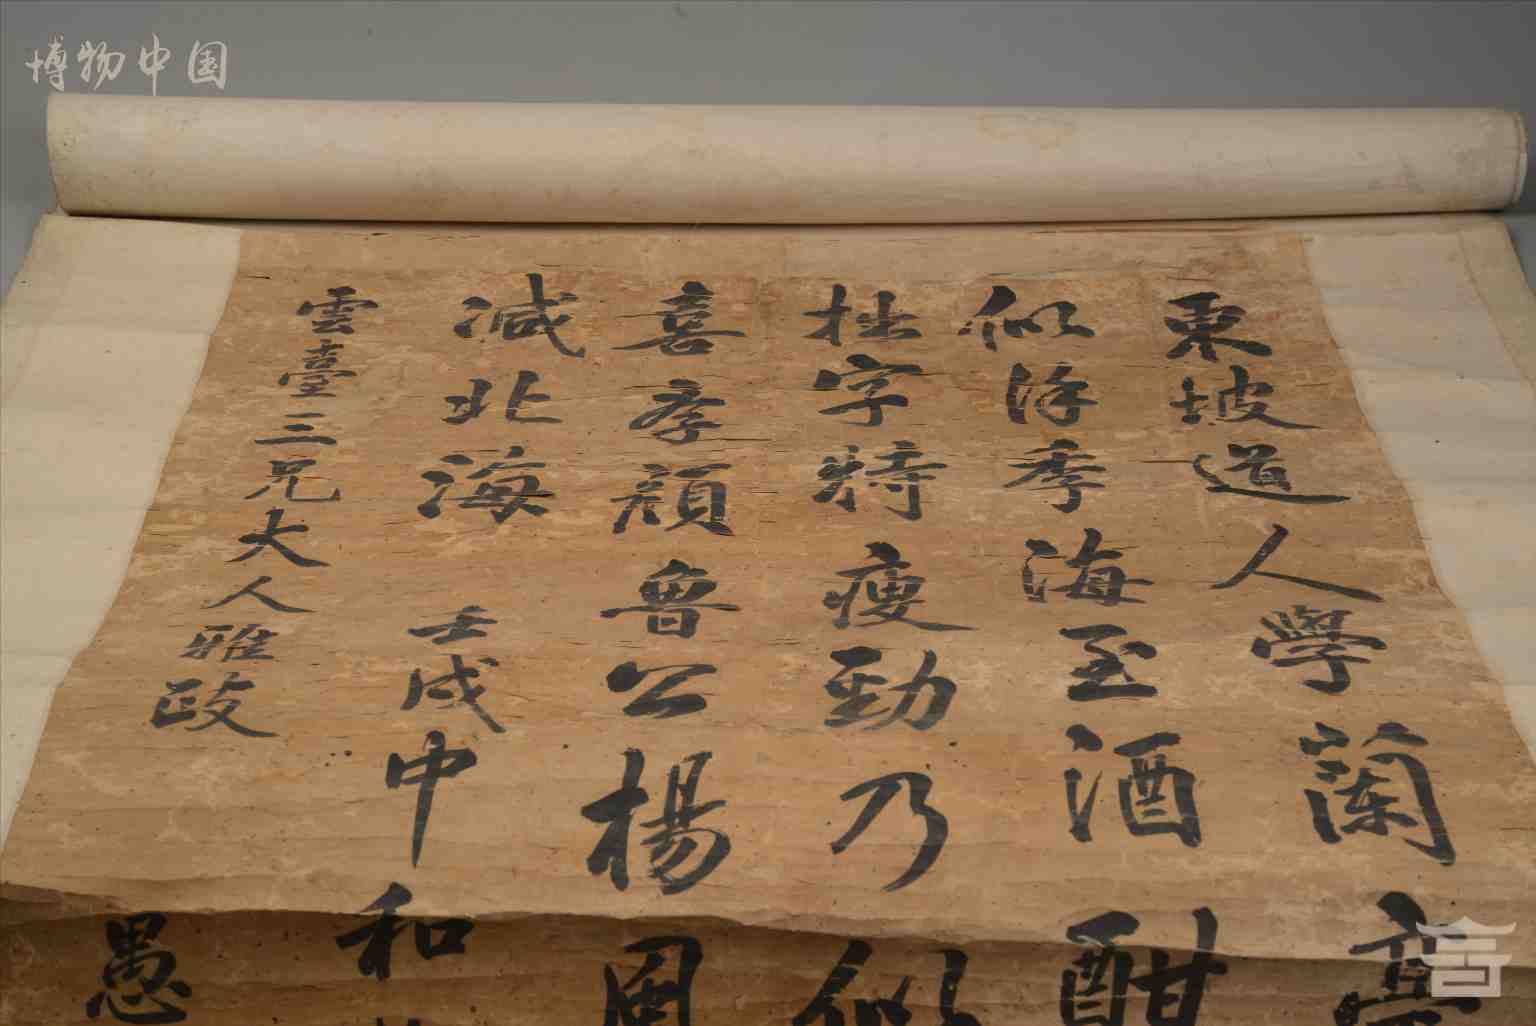 博物中国
東坡道人學蘭亭
似徐季海至酒酣
拙字特瘦勁乃似
喜李顔魯公楊風
减北海 壬戌中和
雲臺三兄大人雅政
愚